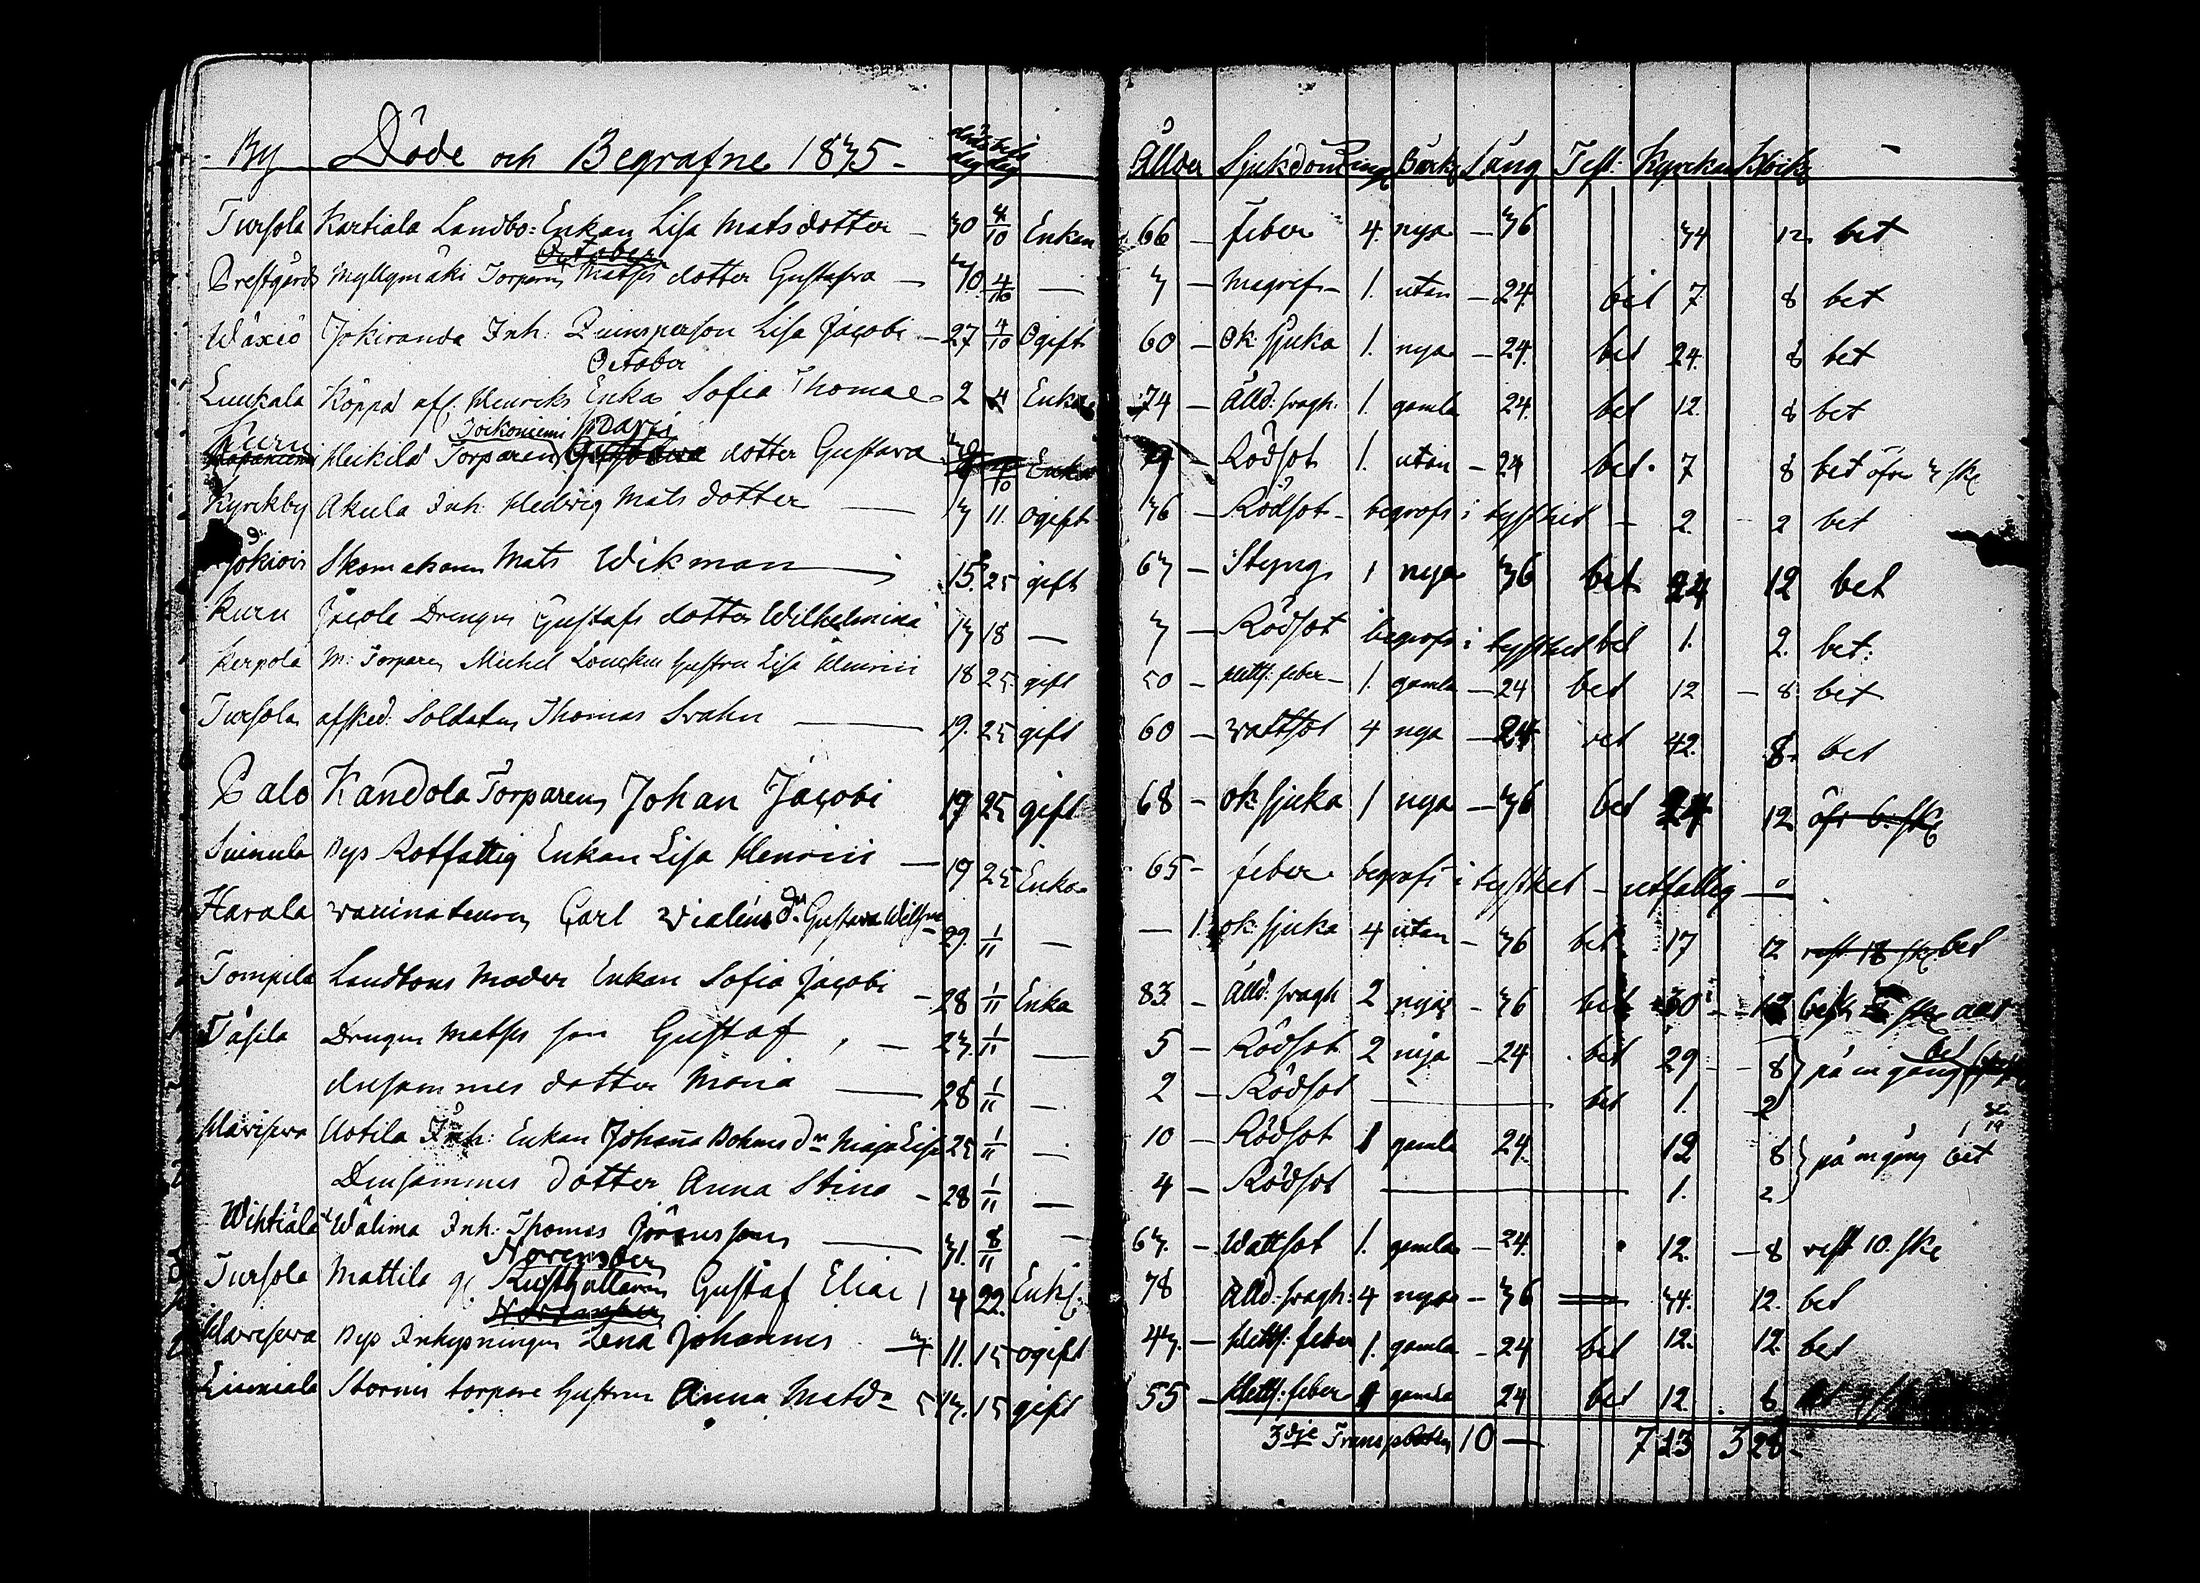 By Döde och Begrafne 1835 döds dag begr dag Ålder Sjukdom Ring Bårkl Säng Test: Kyrkan Kloik
Tursola Kartiala Landbo: Enkan Lisa Mats dotter — 30 4/10 Enkan 66 — feber 4. nya — 36 34 12. bet
October
Prestgårds Myllymäki Torparens Matss dotter Gustafva — 30. 4/10 — 3 — magref — 1. utan — 24. bet 7. 8 bet
Wäxiö Jokiranda Inh: Qvinsperson Lisa Jacobi — 27 4/10 Ogift 60 — Ok: sjuka 1. nya — 24. bet 24. 8 bet
October
Luukala Köppä afl. Henriks Enka Sofia Thomae 2 4 Enka 74 — Ålld: svagh: 1. gamla 24. bet 12. 8 bet
Kuru Heikilä Torparen dotter Gustava Rödsot 1. utan — 24 bet 7 8 bet öfver 3 sk
Kyrckby Akula Inh: Hedvig Mats dotter — 13 11. ogift 36 — Rödsot — begrafs i tysthet — 2. — 2 bet
Jokiois Skomakaren Mats Wikman — 15. 25 gift 63 — Styng 1 nya 36 bet 24 12 bet
Kuru Jacola Drengens Gustafs dotter Wilhelmina 13 18 — 3 — Rödsot begrafs i tysthet bet 1. 2. bet:
Kerpola M: Torparen Michel hustru Lisa Henrici 18 25. gift 50 — Hetts: feber — 1. gamla — 24 bet 12 — 8. bet
Tursola afsked: Soldaten Thomas Svahn — 19. 25 gift 60 — wattsot 4 nya — 24 bet 42. 8. bet
Palo Kandola Torparen Johan Jacobi 19 25 gift 68 — ok: sjuka 1 nya — 36 bet 24 12 öfr 6. sk
Suinula Bys Rotfattig Enkan Lisa Henrici — 19 25 Enka 65 — feber begrafs i tysthet — utfattig —
Havala vaccinateuren Carl Vialéns dr Gustava Wilh — 29. 1/11 — — 1. ok: sjuka 4 utan — 36 bet 17 12 rest 18 sk bet
Tompila Landbons Moder Enkan Sofia Jacobi — 28 1/11 Enka 83 — Ålld: svagh 2 nya — 36 bet 30 — 12
Täsila Drengen Matss son Gustaf, — 23. 1/11 — 5 — Rödsot 2 nya — 24 bet 29 — 8 på en gång bet
densammes dotter Maria — 28 1/11 — 2 — Rödsot — bet 1. 2
Havisewa Uotila Inh: Enkan Johana Bohms dr Maja Lisa 25 1/11 — 10 — Rödsot 1 gamla 24. 12 8 på en gång bet
Densammes dotter Anna Stina — 28 1/11 — 4 — Rödsot — 1. 2
Wihtiälä Wälima Inh: Thomas Jöranssons — 31. 8/11 — 63. — Wattsot 1. gamla — 24. 12. — 8 rest 10. sk
November
Tursola Mattila gl Rusthållaren Gustaf Eliae 4 22. Enkl: 78 Ålld: svagh: 4 nya — 36 — 34. 12. bet
November
Havisewa Bys Inhysningen Lena Johannis 11. 15 ogift 43. — Hetts: feber 1. gamla — 24 bet 12. 12. bet
Liuniala Stornis torpare hustrun Anna Matsdr 13. 15 gift 55 — Hetts: feber 1 gamla 24 bet 12 8
3dje Transporten 10 — 7 13 3 28